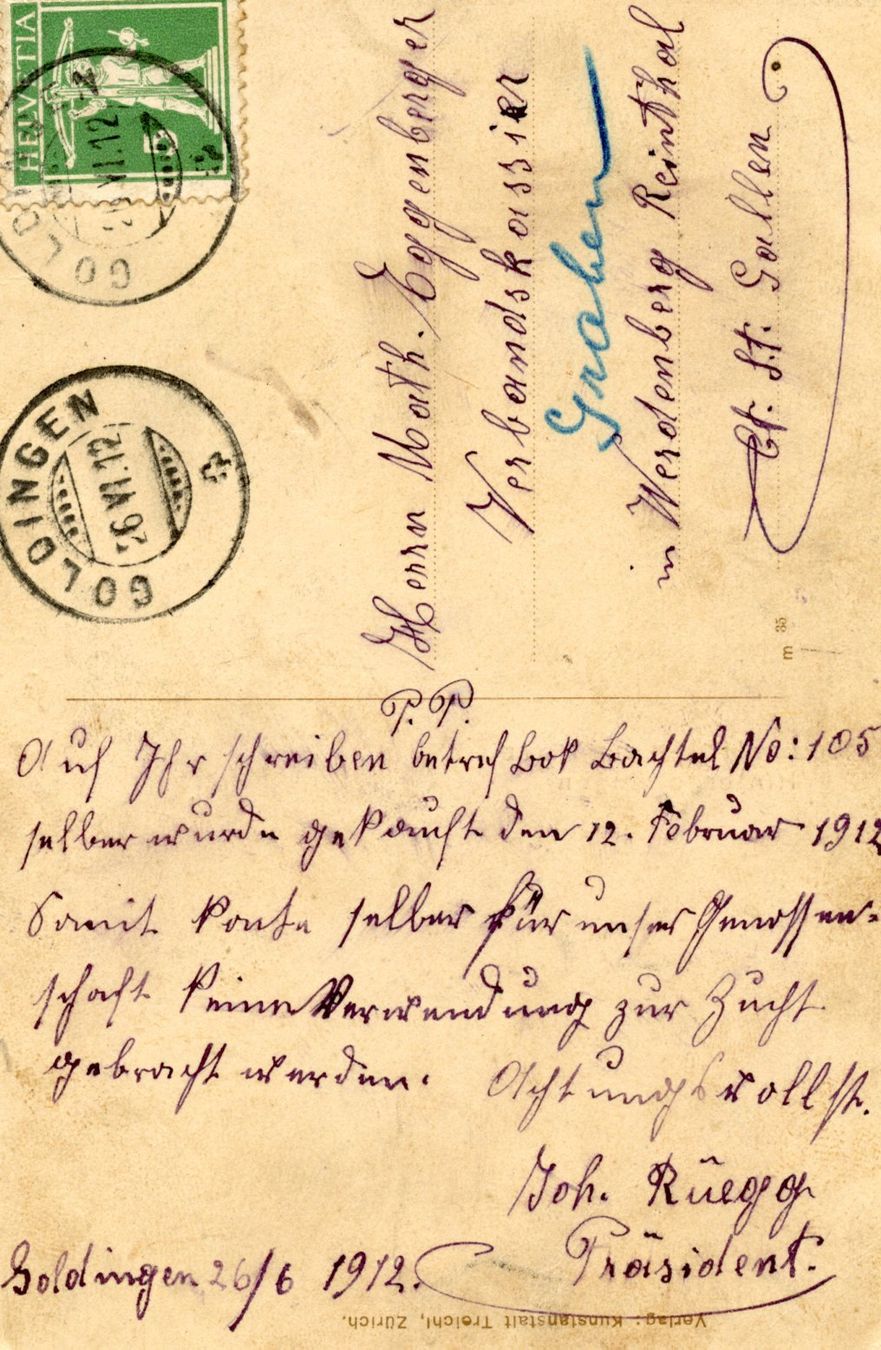 HELVETIA
GOLDINGEN
26.VI.12
GOLDINGEN
26.VI.12
Herrn Math. Eggenberger
Verbandskassier
Graben
in Werdenberg Reinthal
Ct. St. Gallen
m 35
P. P.
Auf Ihr schreiben betref Bok Bachtel No: 105
selber wurde gekauft den 12. Februar 1912
Somit konte selber für unser Genossen-
schaft keine Verwendung zur Zucht
gebracht werden.
Achtungsvollst.
Joh. Rüegg
Präsident.
Goldingen 26/6 1912.
Verlag: Kunstanstalt Treichl, Zürich.